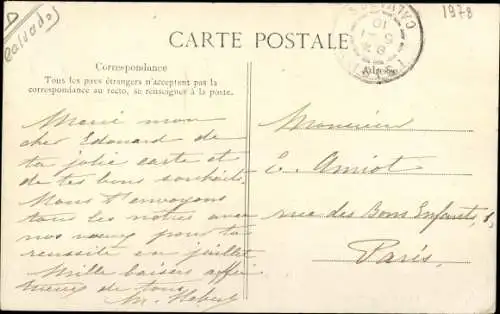 Calvados
1978
CARTE POSTALE
Correspondance
Tous les pays étrangers n'acceptent pas la
correspondance au recto, se renseigner à la poste.
Adresse
Merci mon
cher Edouard de
ta jolie carte et
de tes bons souhaits.
Nous t'envoyons
tous les notres avec
nos vœux pour ta
reussite en juillet
Mille baisers affec
tueux de tous
M. Hebert
Monsieur
E. Amiot
rue des Bons Enfants, 1,
Paris.